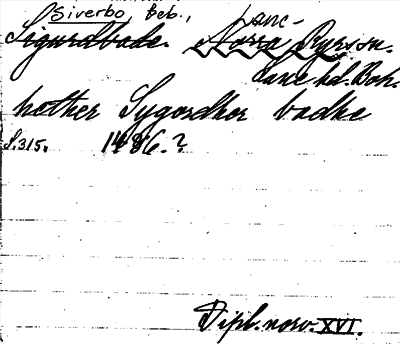 Siverbo, beb., Lane-
Sigurdbode. Norra Ryrson.
Lane hd. Boh.
hether Sygordher badhe
S. 315. 1486.?
Dipl. norv. XVI.